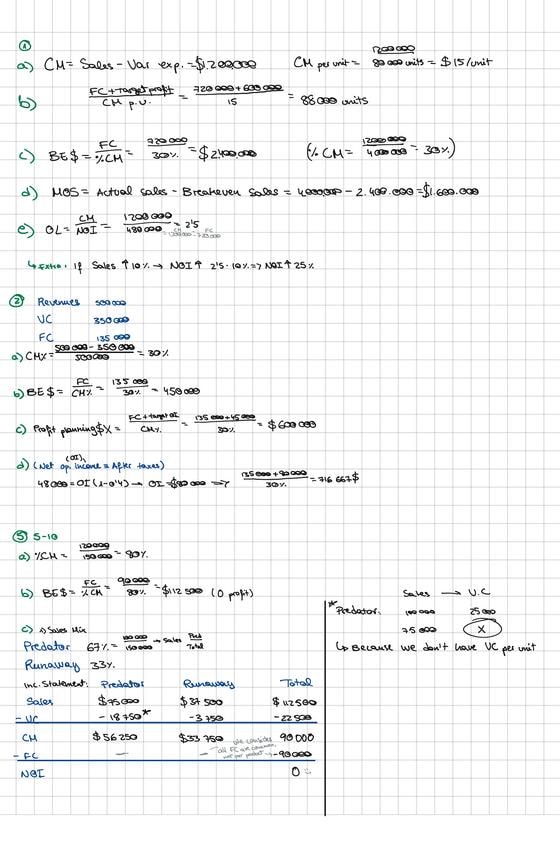 ①
a) CM = Sales - Var exp. = $1.200.000 CM per unit = 1200 000 / 80 000 units = $15/unit
b) FC + target profit / CM p.u. = 720 000 + 600 000 / 15 = 88 000 units
c) BE$ = FC / %CM = 720 000 / 30% = $2.400.000 (% CM = 1200 000 / 4000 000 = 30%)
d) MOS = Actual Sales - Breakeven Sales = 4000000 - 2.400.000 = $1.600.000
e) OL = CM / NOI = 1200 000 / 480 000 = 2'5
CM 1200 000 - FC 720 000
↳ Extra: If Sales ↑ 10% → NOI ↑ 2'5 · 10% => NOI ↑ 25%
② Revenues 500 000
VC 350 000
FC 135 000
a) CM% = 500 000 - 350 000 / 500 000 = 30%
b) BE$ = FC / CM% = 135 000 / 30% = 450 000
c) Profit planning $X = FC + target OI / CM% = 135 000 + 45 000 / 30% = $600 000
d) (Net op. income = After taxes)
(OI)
48 000 = OI (1-0'4) → OI = $80 000 => 135 000 + 80 000 / 30% = 716 667 $
⑤ 5-10
a) %CM = 120000 / 150 000 = 80%
b) BE$ = FC / %CM = 90 000 / 80% = $112 500 (0 profit)
c) 1) Sales Mix
Predator 67% = 100 000 / 150 000 → Sales Pred / Total
Runaway 33%
Inc. Statement: Predator Runaway Total
Sales $75 000 $37 500 $112 500
- VC - 18 750* -3 750 -22 500
CM $56 250 $33 750 90 000
- FC — — -90 000
we consider all FC are common, not per product
NOI 0 :)
Sales → V.C
* Predator: 100 000 25 000
75 000 X
↳ Because we don't have VC per unit